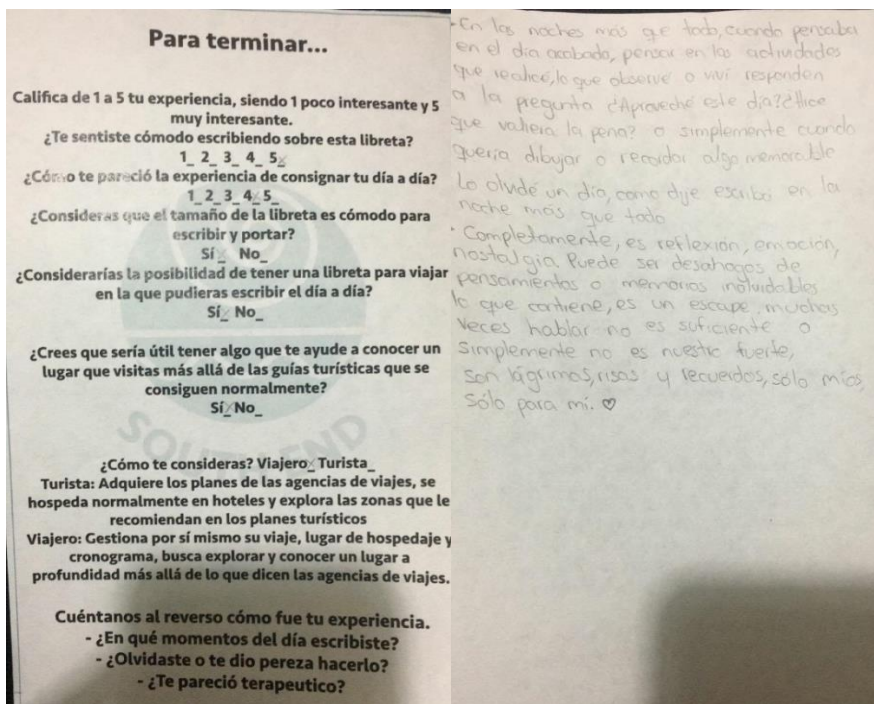 Para terminar...
Califica de 1 a 5 tu experiencia, siendo 1 poco interesante y 5
muy interesante.
¿Te sentiste cómodo escribiendo sobre esta libreta?
1_ 2_ 3_ 4_ 5_
¿Cómo te pareció la experiencia de consignar tu día a día?
1_ 2_ 3_ 4_ 5_
¿Consideras que el tamaño de la libreta es cómodo para
escribir y portar?
Sí_ No_
¿Considerarías la posibilidad de tener una libreta para viajar
en la que pudieras escribir el día a día?
Sí_ No_
¿Crees que sería útil tener algo que te ayude a conocer un
lugar que visitas más allá de las guías turísticas que se
consiguen normalmente?
Sí_ No_
¿Cómo te consideras? Viajero_ Turista_
Turista: Adquiere los planes de las agencias de viajes, se
hospeda normalmente en hoteles y explora las zonas que le
recomiendan en los planes turísticos
Viajero: Gestiona por sí mismo su viaje, lugar de hospedaje y
cronograma, busca explorar y conocer un lugar a
profundidad más allá de lo que dicen las agencias de viajes.
Cuéntanos al reverso cómo fue tu experiencia.
- ¿En qué momentos del día escribiste?
- ¿Olvidaste o te dio pereza hacerlo?
- ¿Te pareció terapeutico?
·En las noches más que todo, cuando pensaba
en el día acabado, pensar en las actividades
que realicé, lo que observé o viví responden
a la pregunta ¿Aproveché este día? ¿Hice
que valiera la pena? o simplemente cuando
quería dibujar o recordar algo memorable
Lo olvidé un día, como dije escribí en la
noche más que todo
· Completamente, es reflexión, emoción,
nostalgia. Puede ser desahogos de
pensamientos o memorias inolvidables
lo que contiene, es un escape, muchas
veces hablar no es suficiente o
simplemente no es nuestro fuerte,
son lágrimas, risas y recuerdos, sólo míos,
sólo para mí. ♡